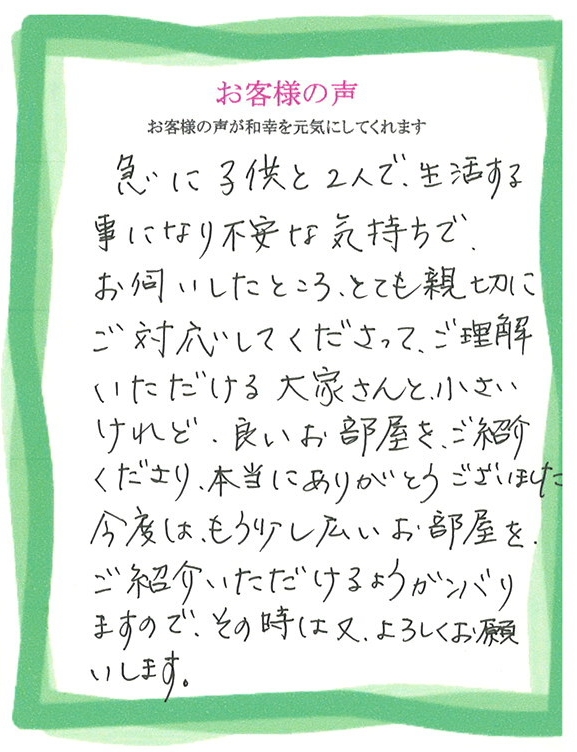 お客様の声
お客様の声が和幸を元気にしてくれます
急に子供と2人で、生活する
事になり不安な気持ちで、
お伺いしたところ、とても親切に
ご対応してくださって、ご理解
いただける大家さんと、小さい
けれど、良いお部屋を、ご紹介
くださり、本当にありがとうございました
今度は、もう少し広いお部屋を、
ご紹介いただけるようガンバリ
ますので、その時は又、よろしくお願
いします。